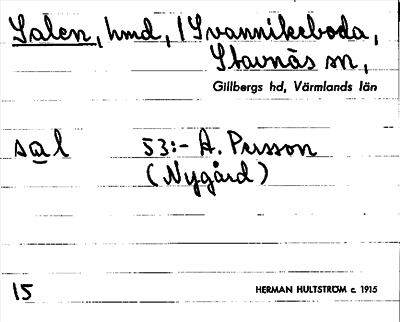 Salen, hmd, i Svannikeboda,
Stavnäs sn,
Gillbergs hd, Värmlands län
sal 53:- A. Persson
(Nygård)
15 HERMAN HULTSTRÖM c. 1915